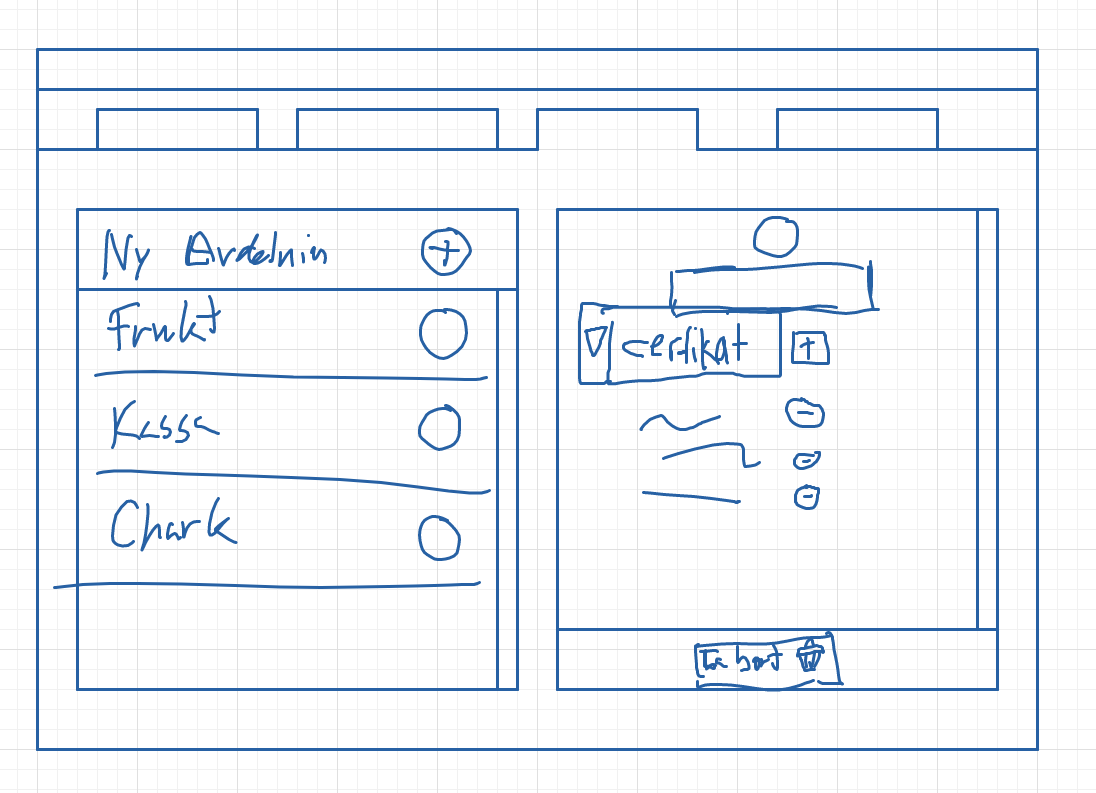 Ny Avdelnin
+
Frukt
Kassa
Chark
cerfikat +
-
-
-
Ta bort